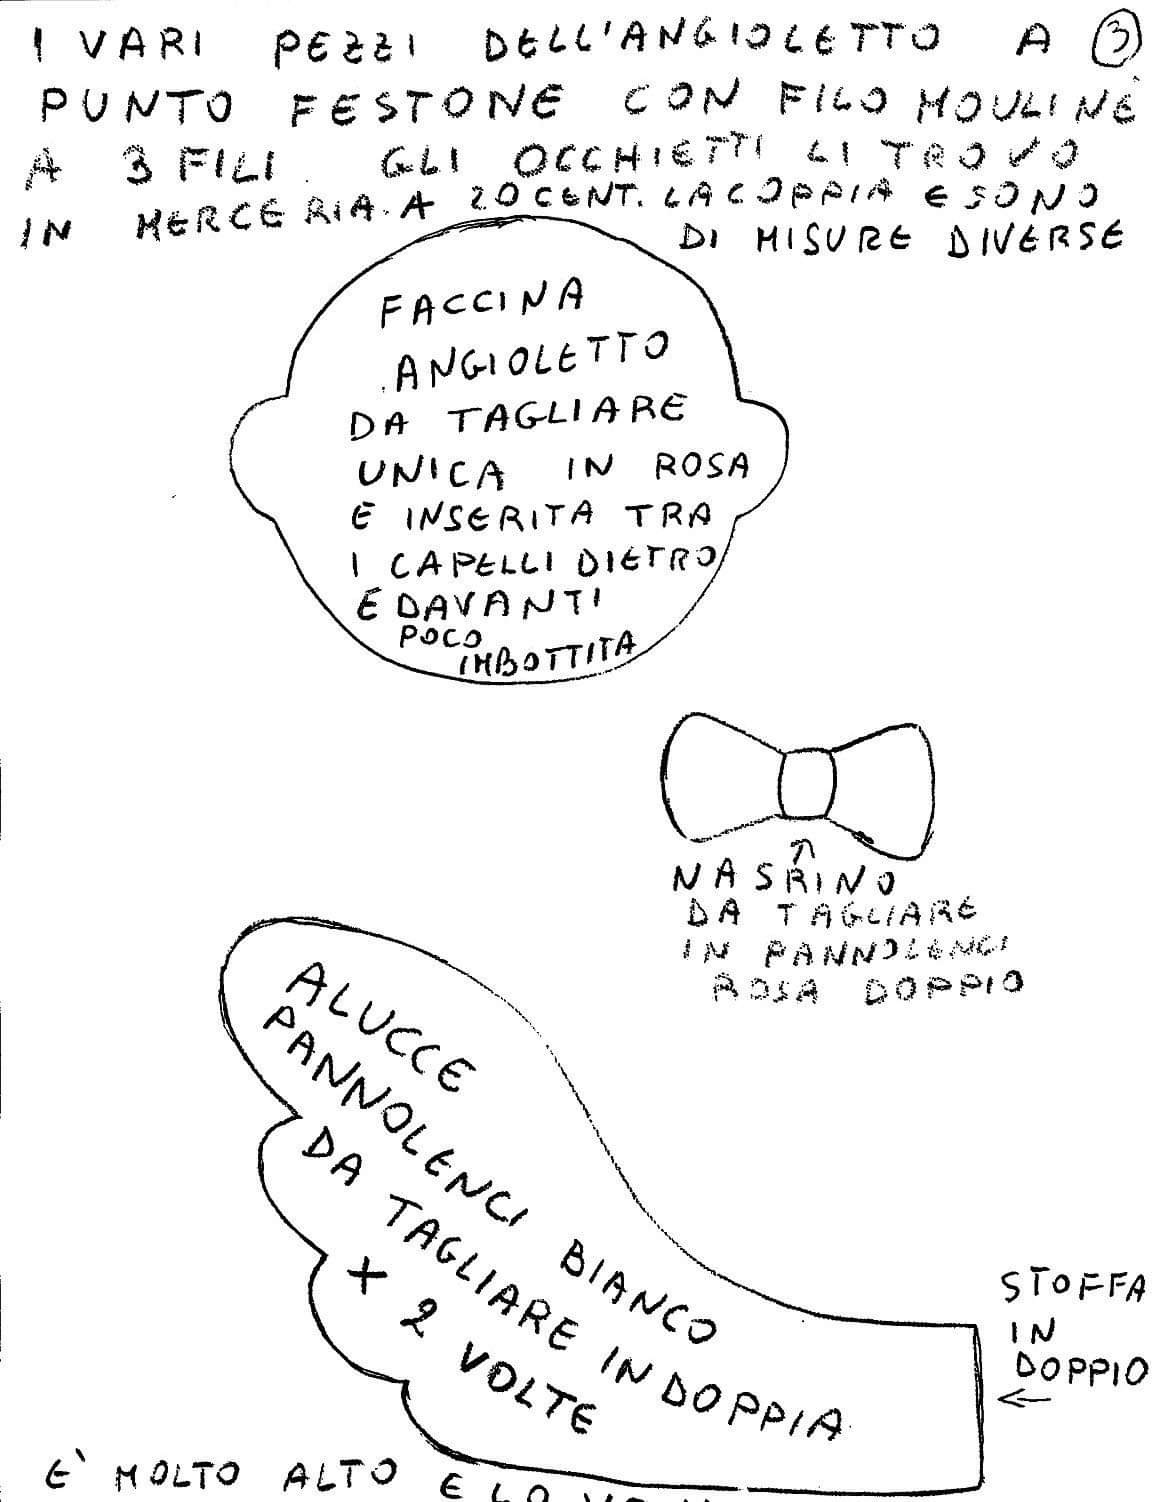 I VARI PEZZI DELL'ANGIOLETTO A 3
PUNTO FESTONE CON FILO MOULINÈ
A 3 FILI. GLI OCCHIETTI LI TROVO
IN MERCERIA. A 20 CENT. LA COPPIA E SONO
DI MISURE DIVERSE
FACCINA
ANGIOLETTO
DA TAGLIARE
UNICA IN ROSA
E INSERITA TRA
I CAPELLI DIETRO
E DAVANTI
POCO
IMBOTTITA
NASRINO
DA TAGLIARE
IN PANNOLENCI
ROSA DOPPIO
ALUCCE
PANNOLENCI BIANCO
DA TAGLIARE IN DOPPIA
X 2 VOLTE
STOFFA
IN
DOPPIO
E' MOLTO ALTO E LO